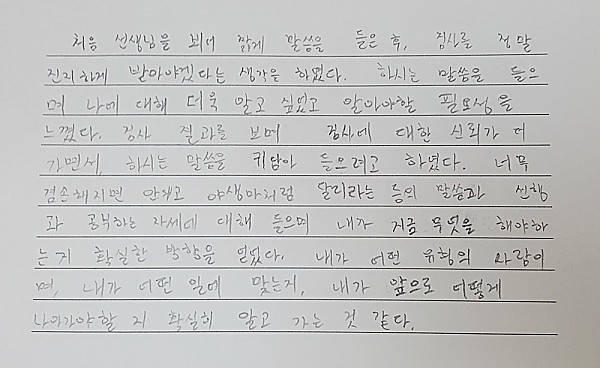 처음 선생님을 뵈어 짧게 말씀을 들은 후, 검사를 정말
진지하게 받아야겠다는 생각을 하였다. 하시는 말씀을 들으
며 나에 대해 더욱 알고 싶었고 알아야할 필요성을
느꼈다. 검사 결과를 보며 검사에 대한 신뢰가 더
가면서, 하시는 말씀을 귀담아 들으려고 하였다. 너무
겸손해지면 안되고 야생마처럼 달리라는 등의 말씀과 신행
과 공부하는 자세에 대해 들으며 내가 지금 무엇을 해야하
는지 확실한 방향을 얻었다. 내가 어떤 유형의 사람이
며, 내가 어떤 일에 맞는지, 내가 앞으로 어떻게
나아가야할 지 확실히 알고 가는 것 같다.